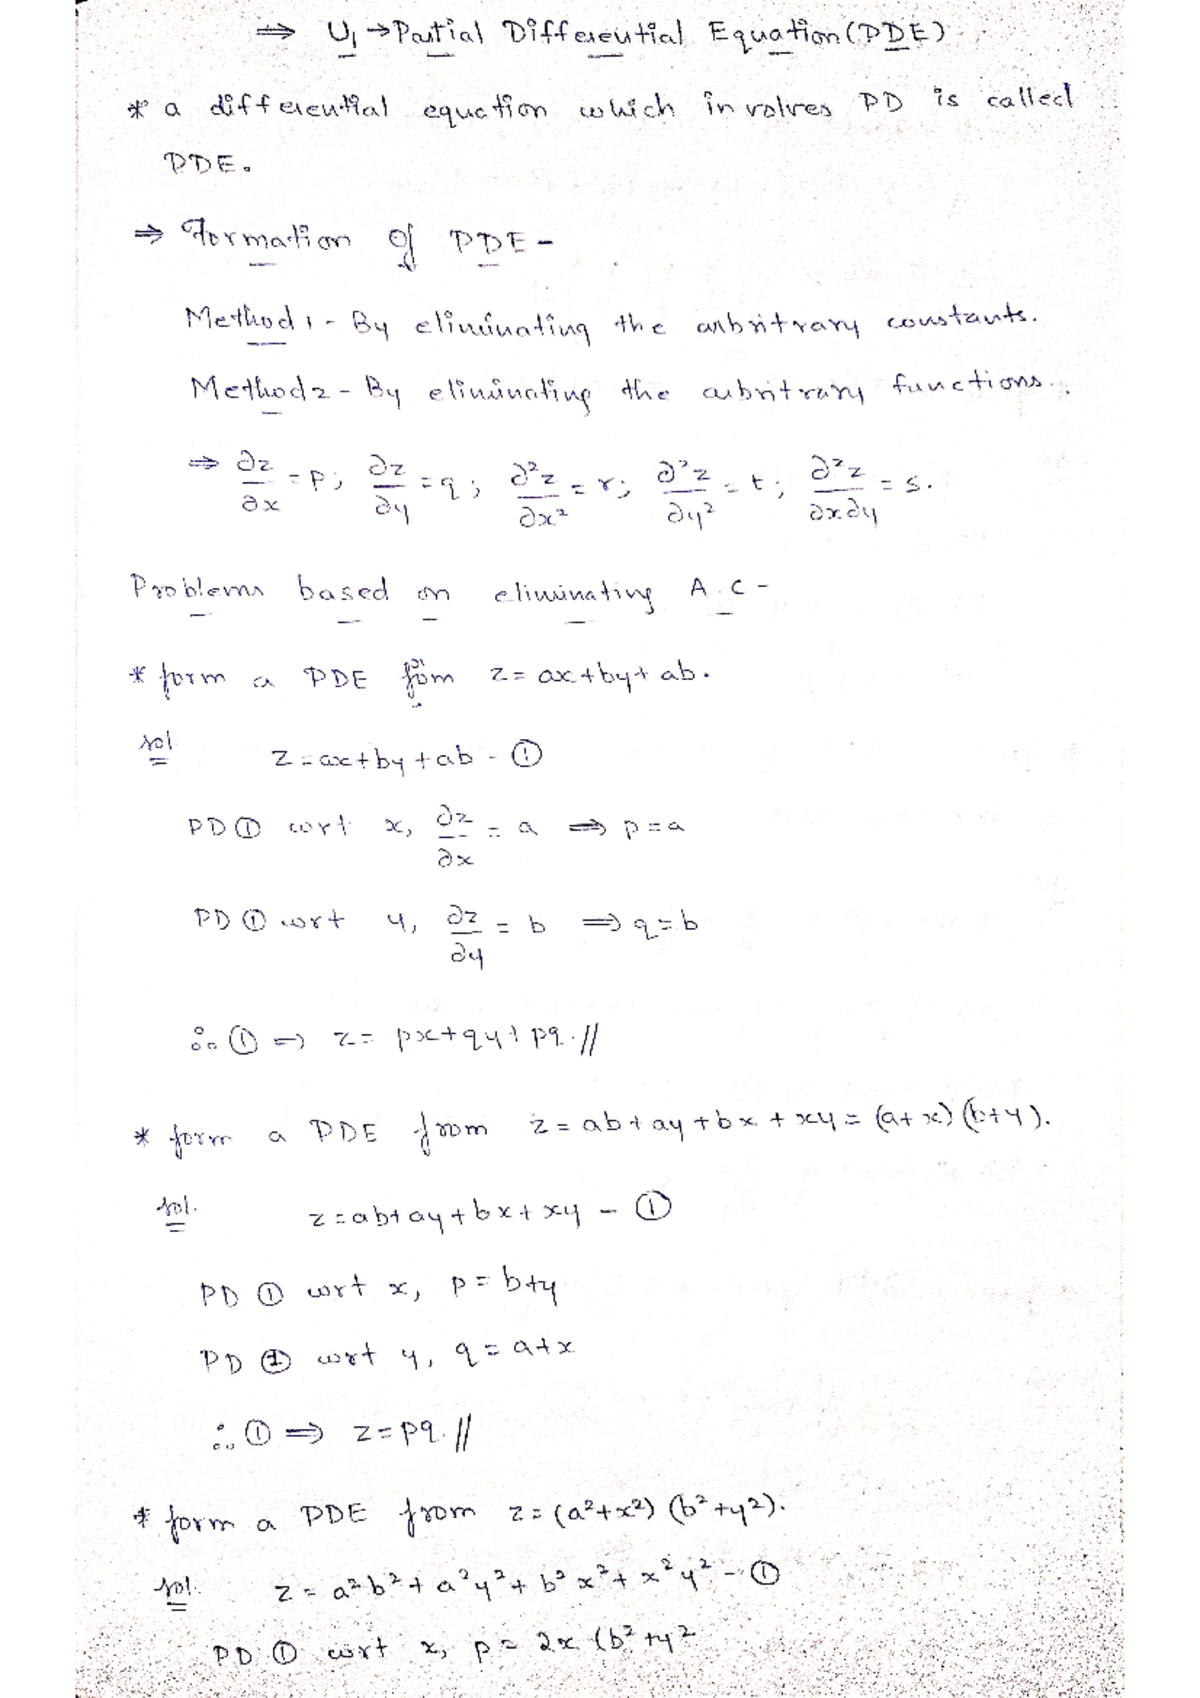 ⇒ U₁ → Partial Differential Equation (PDE)
* a differential equation which involves PD is called
PDE.
⇒ Formation of PDE -
Method 1 - By eliminating the arbritrary constants.
Method 2 - By eliminating the arbritrary functions.
⇒ ∂z/∂x = p; ∂z/∂y = q; ∂²z/∂x² = r; ∂²z/∂y² = t; ∂²z/∂x∂y = s.
Problems based on eliminating A.C -
* form a PDE from z = ax+by+ab.
sol. z = ax+by+ab - ①
PD ① wrt x, ∂z/∂x = a ⇒ p = a
PD ① wrt y, ∂z/∂y = b ⇒ q = b
∴ ① ⇒ z = px+qy+pq.//
* form a PDE from z = ab+ay+bx+xy = (a+x)(b+y).
sol. z = ab+ay+bx+xy - ①
PD ① wrt x, p = b+y
PD ① wrt y, q = a+x
∴ ① ⇒ z = pq.//
* form a PDE from z = (a²+x²) (b²+y²).
sol. z = a²b²+a²y²+b²x²+x²y² - ①
PD ① wrt x, p = 2x (b²+y²